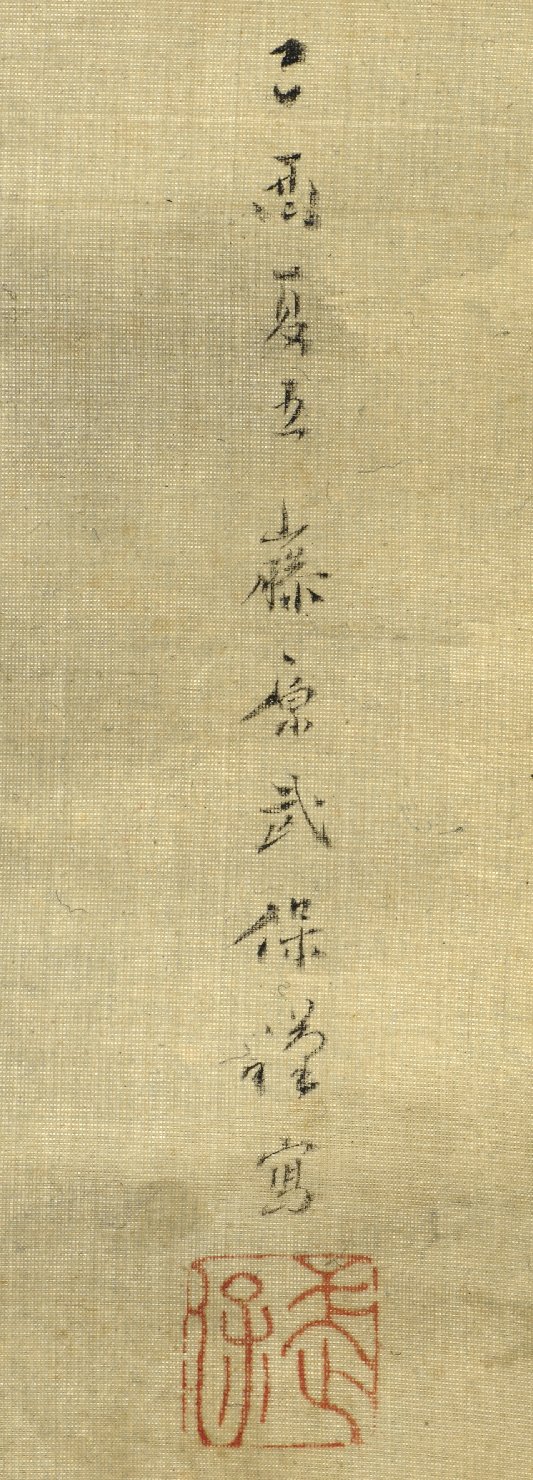 己酉夏五藤原武保謹寫
武保